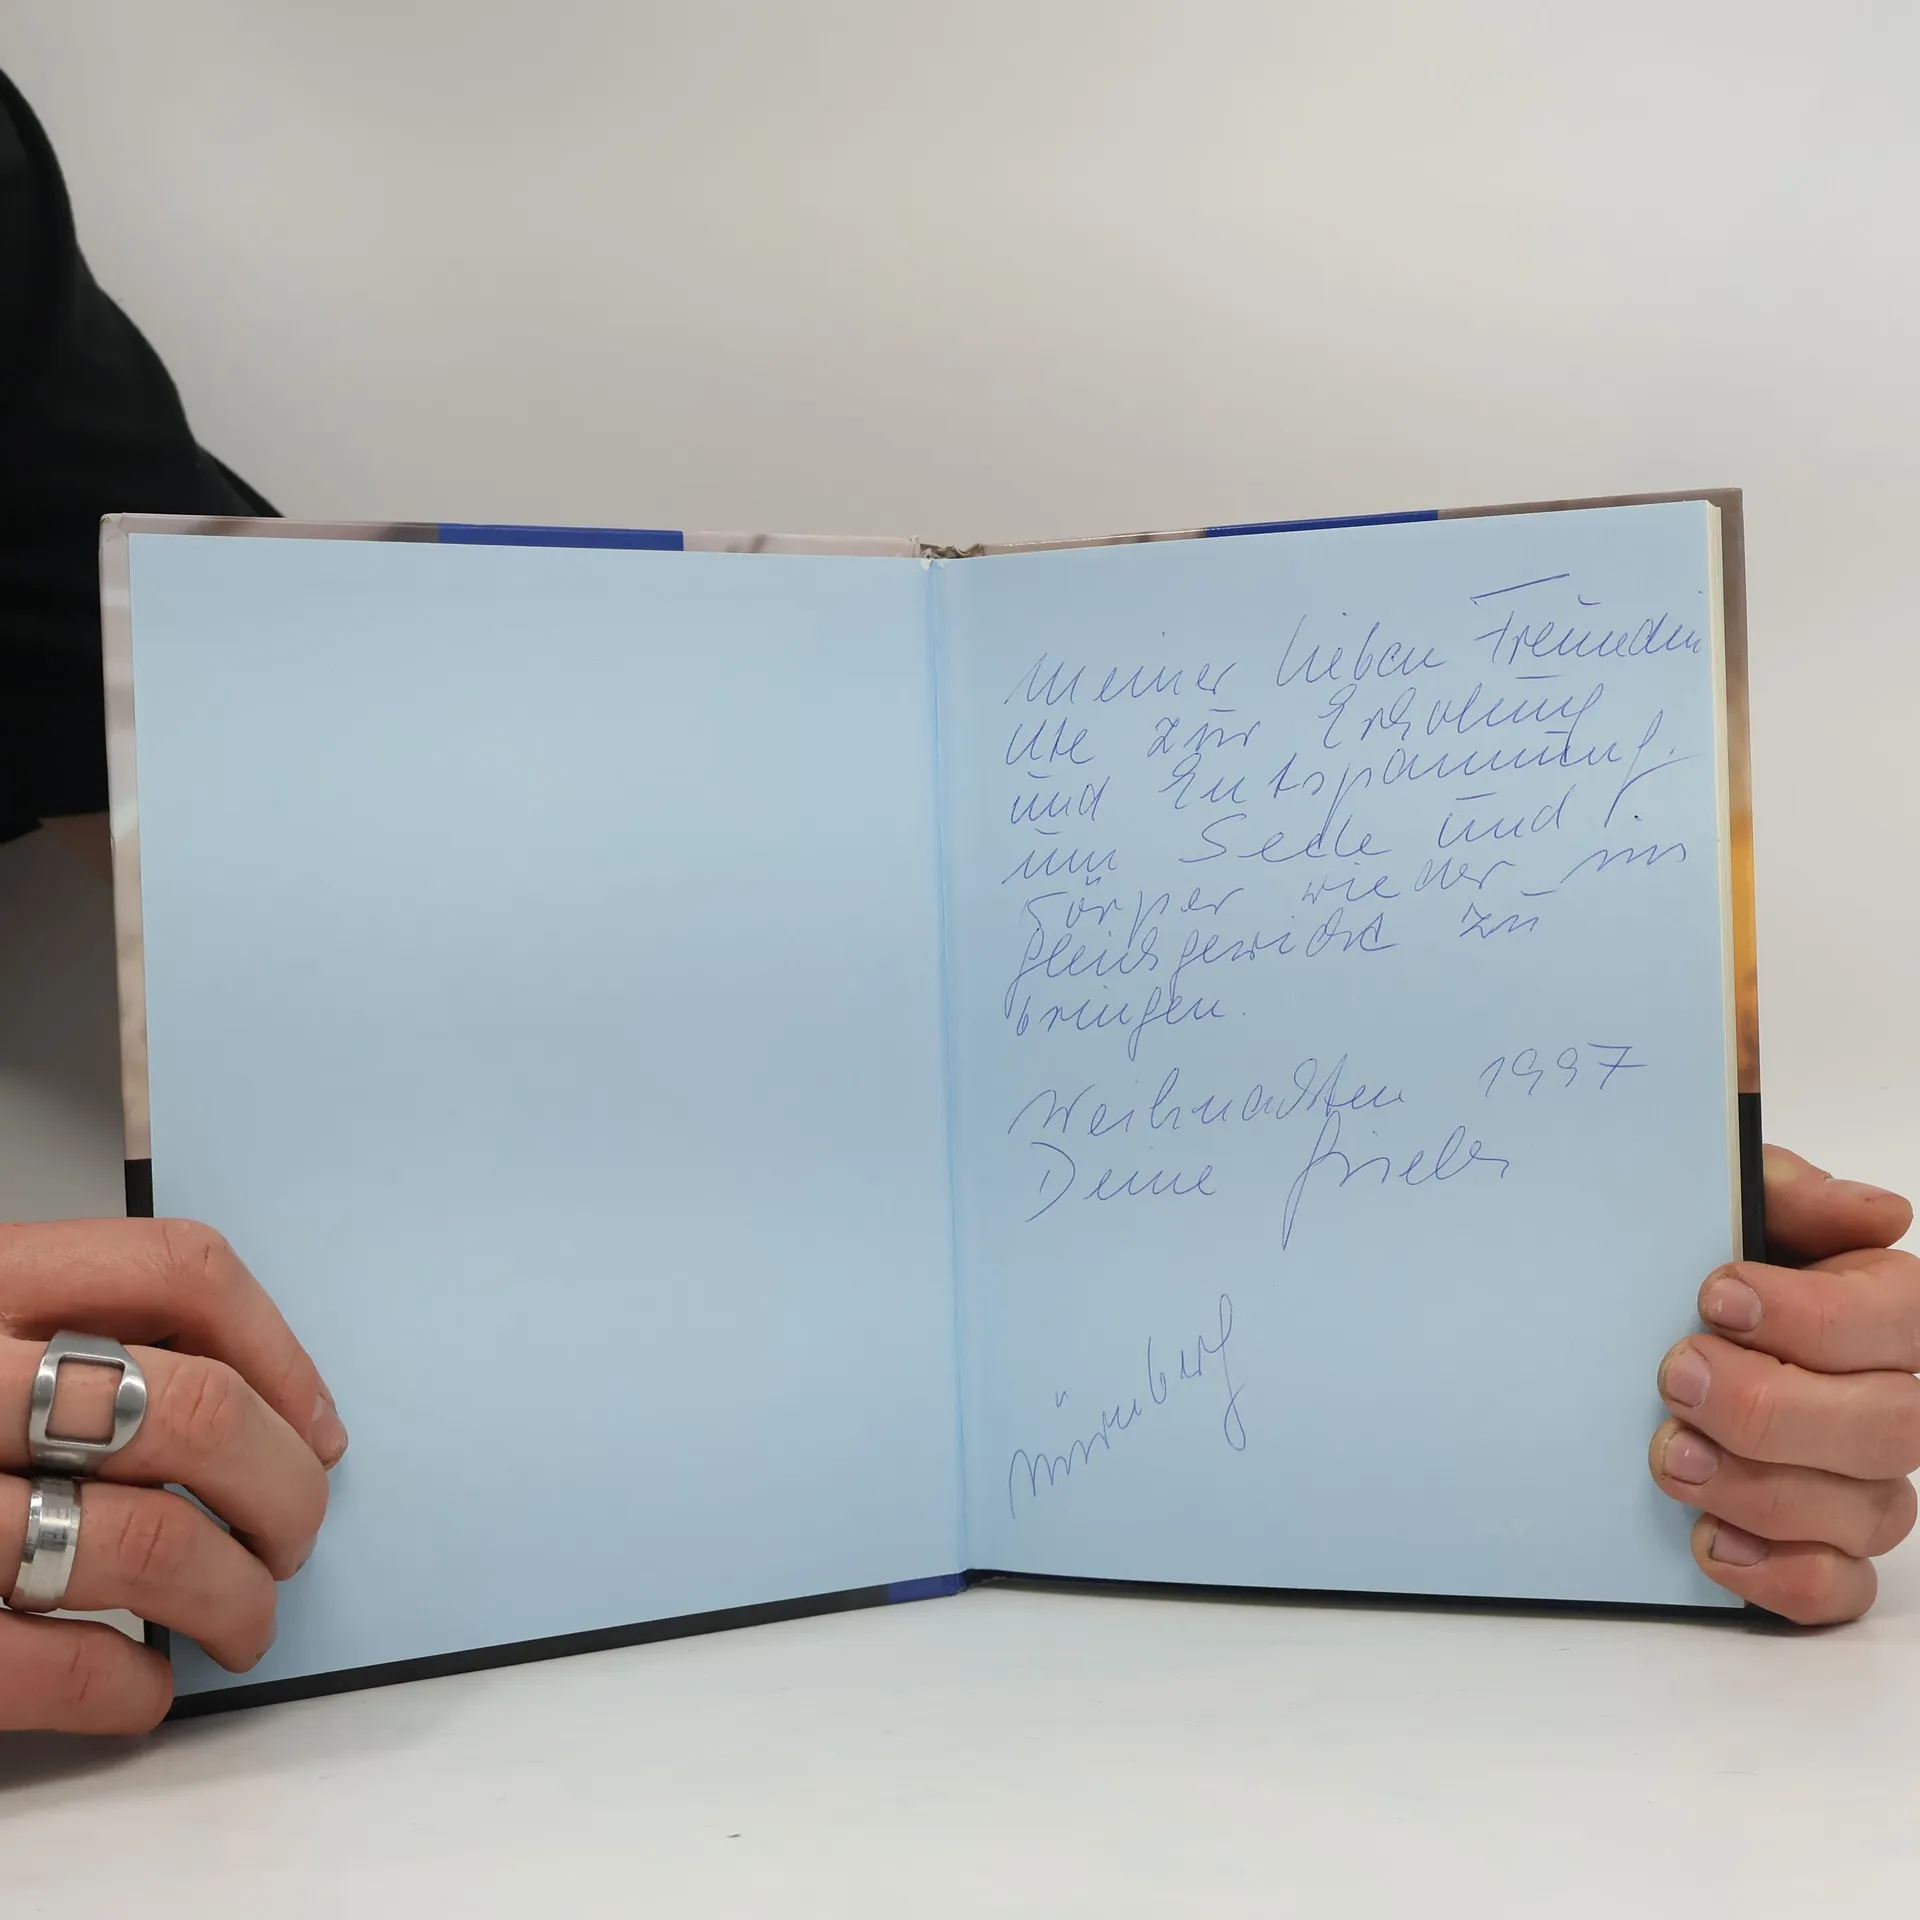 Meiner lieben Freundin
Ute zur Erholung
und Entspannung,
um Seele und
Körper wieder ins
Gleichgewicht zu
bringen.
Weihnachten 1997
Deine
Nürnberg